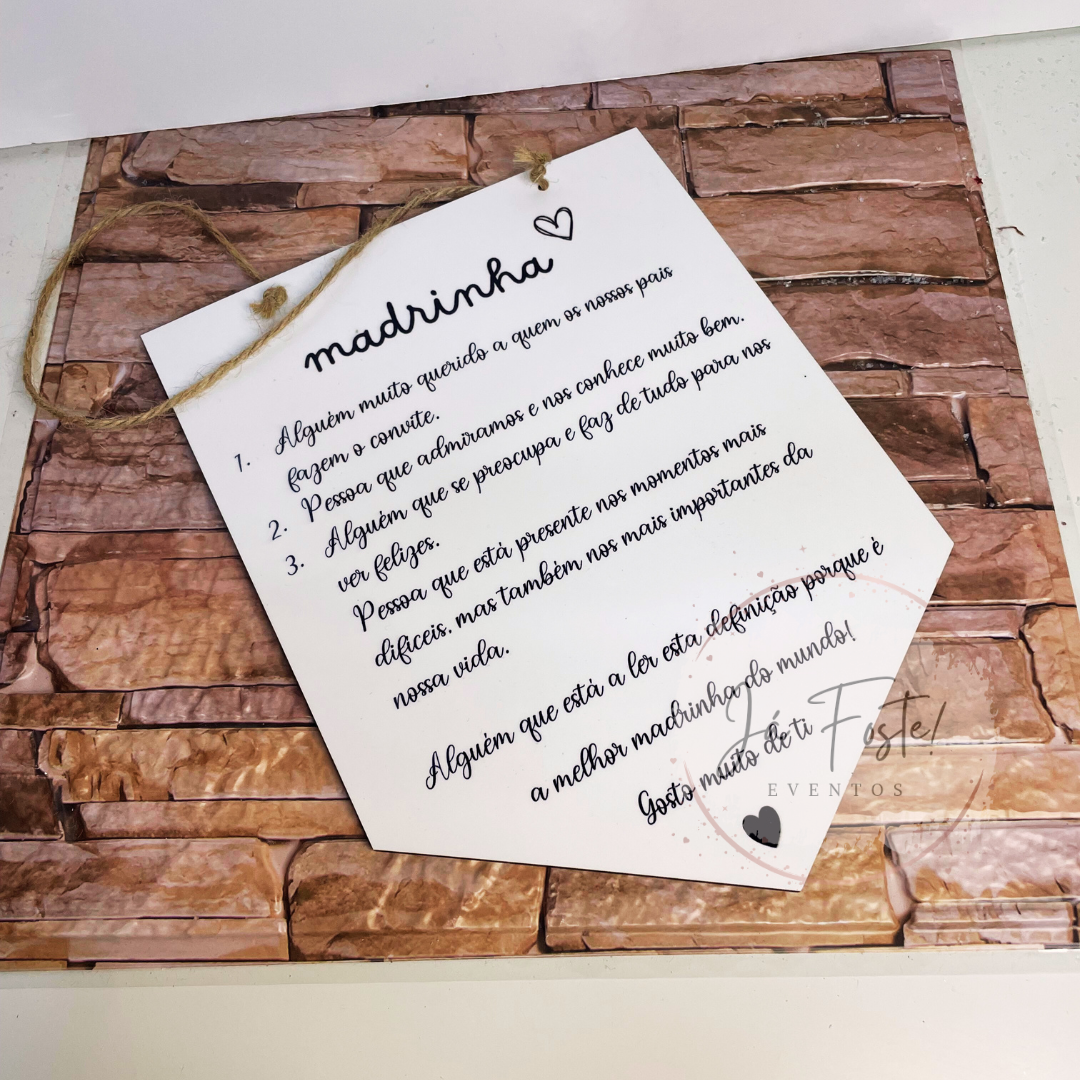 madrinha
1. Alguém muito querido a quem os nossos pais
fazem o convite.
2. Pessoa que admiramos e nos conhece muito bem.
3. Alguém que se preocupa e faz de tudo para nos
ver felizes.
Pessoa que está presente nos momentos mais
dificeis, mas também nos mais importantes da
nossa vida.
Alguém que está a ler esta definição porque é
a melhor madrinha do mundo!
Gosto muito de ti
Já Foste!
EVENTOS